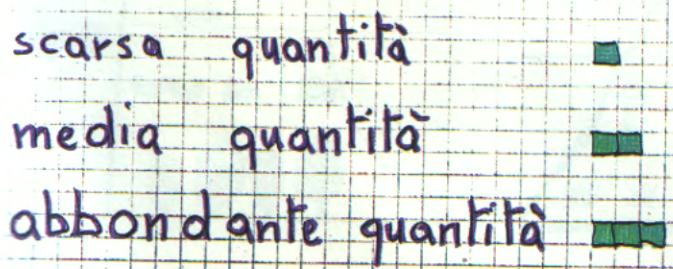 scarsa quantità
media quantità
abbondante quantità